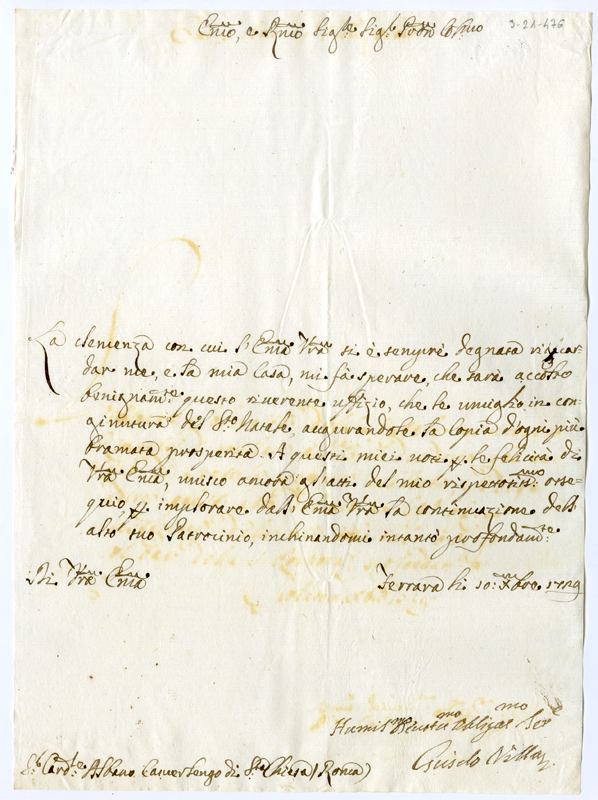 9-21-476
Em̃o, e Rm̃o Sig.re Sig.r Pron̄ Col̄mo
La clemenza con cui l'Em̃a Vr̃a si è sempre degnata riguar-
dar me, e la mia Casa, mi fà sperare, che sarà accolto
benignam.te questo riverente uffizio, che le umiglio in con-
giuntura del S.to Natale, augurandole la copia d'ogni più
bramata prosperità. A questi miei voti p. le felicità di
Vr̃a Em̃a, unisco ancora gl'atti del mio rispettosiss.mo osse-
quio p. implorare dall'Em̃a Vr̃a la continuazione dell'
alto suo Patrocinio, inchinandomi intanto profondam.te
Di Vr̃a Em̃a
Ferrara li 10: Xbre 1729
Humil.mo Obligat.mo Ser.e
Guido Villa
S.r Card.le Albano Camerlengo di S.ta Chiesa (Roma)